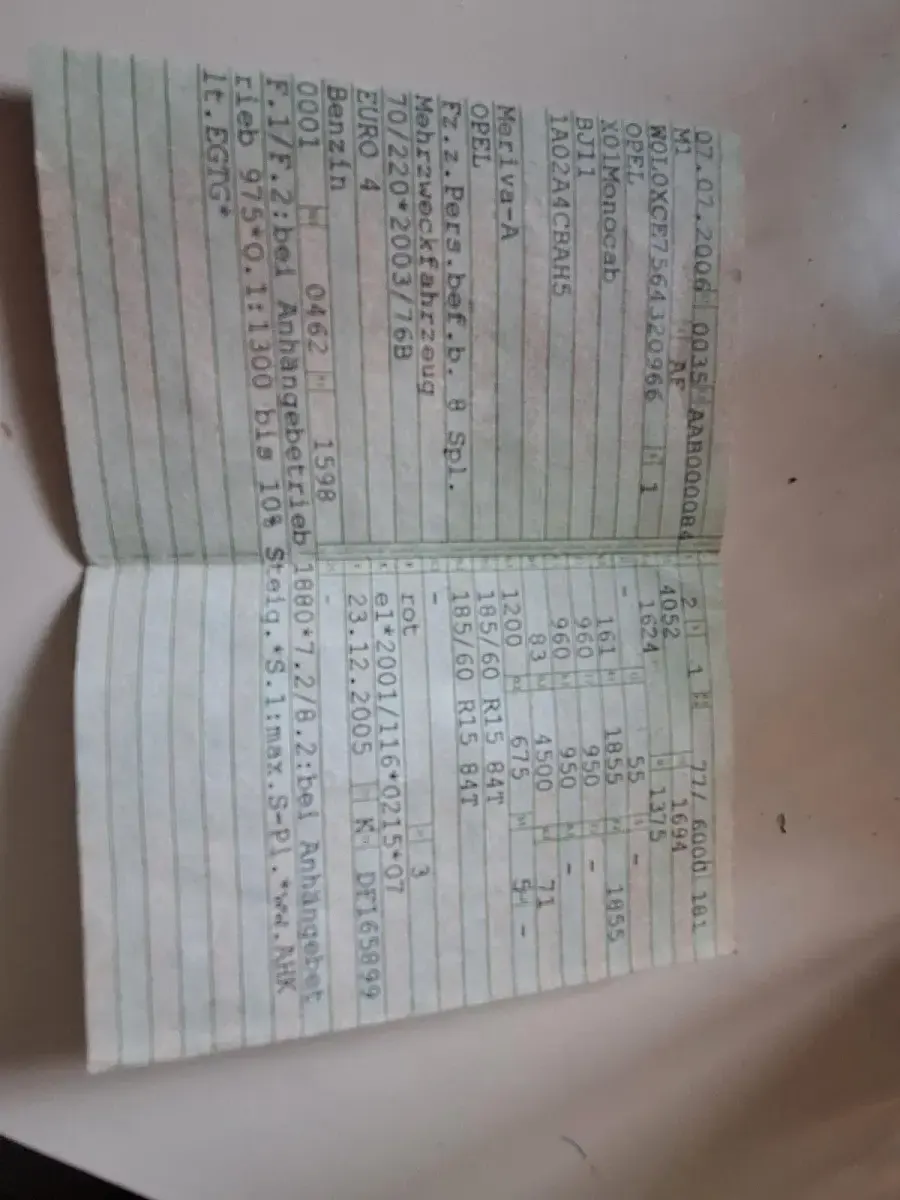 07.07.2006 0035 AAB000084
M1 AF
W0L0XCE7564320966 1
OPEL
X01Monocab
BJ11
1A02A4CBAH5
Meriva-A
OPEL
Fz.z.Pers.bef.b. 8 Spl.
Mehrzweckfahrzeug
70/220*2003/76B
EURO 4
Benzin
0001 0462 1598
2 1 77/ 6000 181
4052 1694
1624 1375
- 55 -
161 1855 1855
960 950 -
960 950 -
83 4500 71
1200 675 5 -
185/60 R15 84T
185/60 R15 84T
-
rot 3
e1*2001/116*0215*07
23.12.2005 K DF165899
-
F.1/F.2:bei Anhängebetrieb 1880*7.2/8.2:bei Anhängebet
rieb 975*O.1:1300 bis 10% Steig.*S.1:max.S-Pl.*wd.AHK
lt.EGTG*